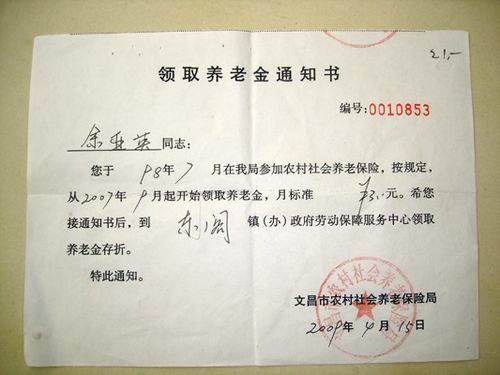 21,-
领取养老金通知书
编号:0010853
余亚英同志:
您于98年7月在我局参加农村社会养老保险,按规定,
从2007年9月起开始领取养老金,月标准 元。希您
接通知书后,到东阁镇(办)政府劳动保障服务中心领取
养老金存折。
特此通知。
文昌市农村社会养老保险局
2009年4月15日